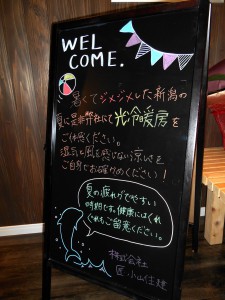 WEL
COME.
暑くてジメジメした新潟の
夏に是非弊社にて光冷暖房を
ご体感ください。
湿気と風を感じない涼しさを
ご自身でお確かめください！
夏の疲れがでやすい
時期です。健康にはくれ
ぐれもご留意ください。
株式会社
匠小山住建